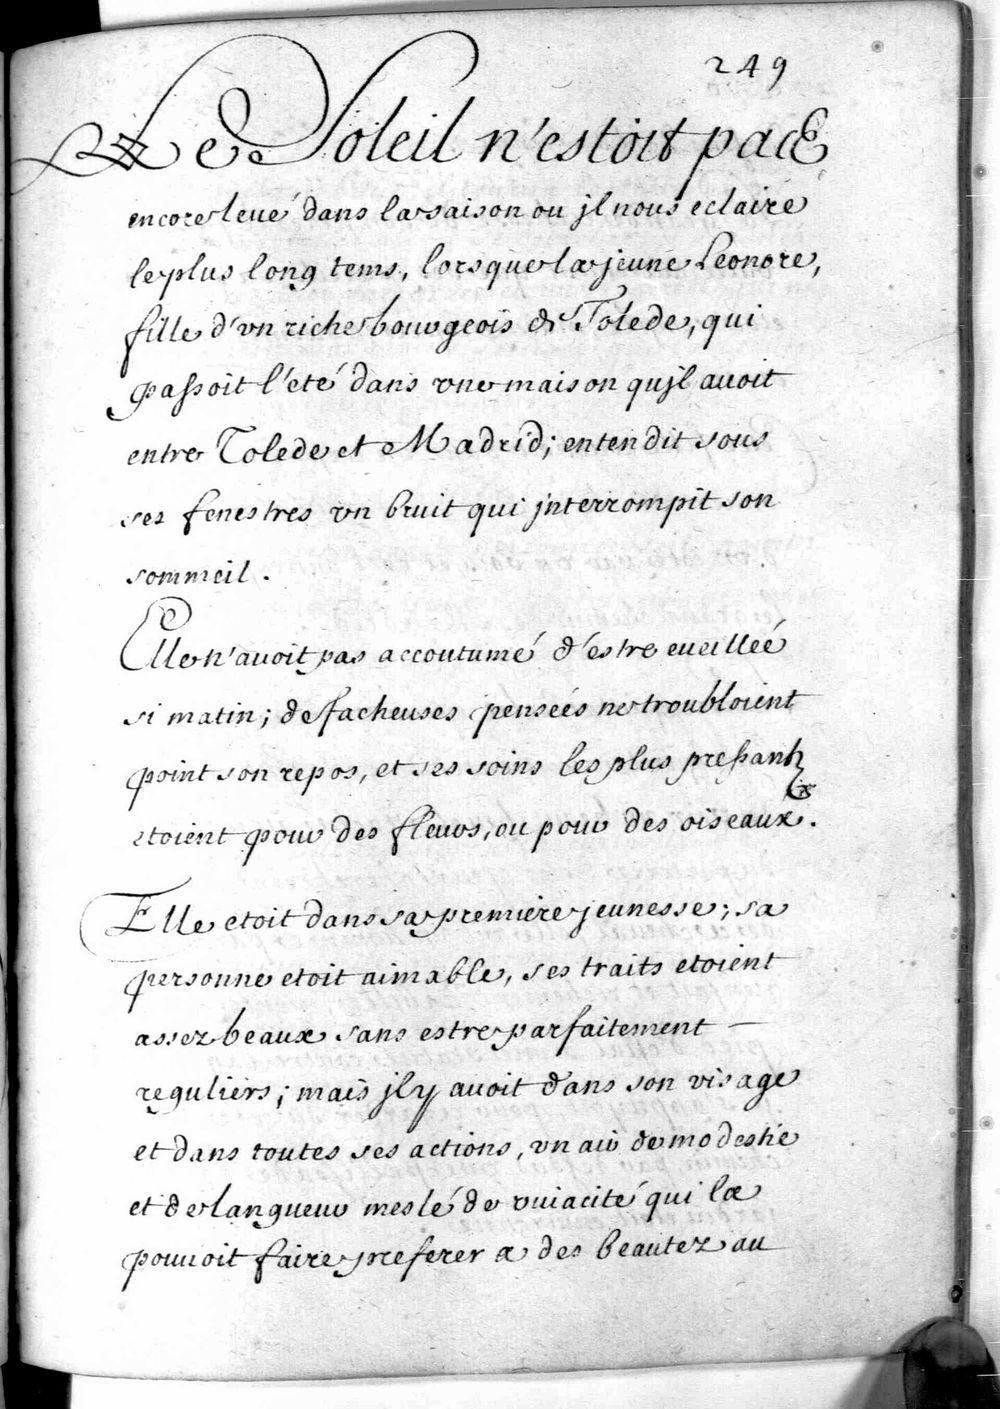 249
Le Soleil n'estoit pas
encore leué dans la saison ou jl nous eclaire
le plus long tems, lorsque la jeune Leonore,
fille d'vn riche bourgeois de Tolede, qui
passoit l'eté dans vne maison qujl auoit
entre Tolede et Madrid; entendit sous
ses fenestres vn bruit qui jnterrompit son
sommeil.
Elle n'auoit pas accoutumé d'estre eueillée
si matin; de facheuses pensées ne troubloient
point son repos, et ses soins les plus pressants
etoient pour des fleurs, ou pour des oiseaux.
Elle etoit dans sa premiere jeunesse; sa
personne etoit aimable, ses traits etoient
assez beaux sans estre parfaitement
reguliers; mais jl y auoit dans son visage
et dans toutes ses actions, vn air de modestie
et de langueur meslé de viuacité qui la
pouuoit faire preferer a des beautez au